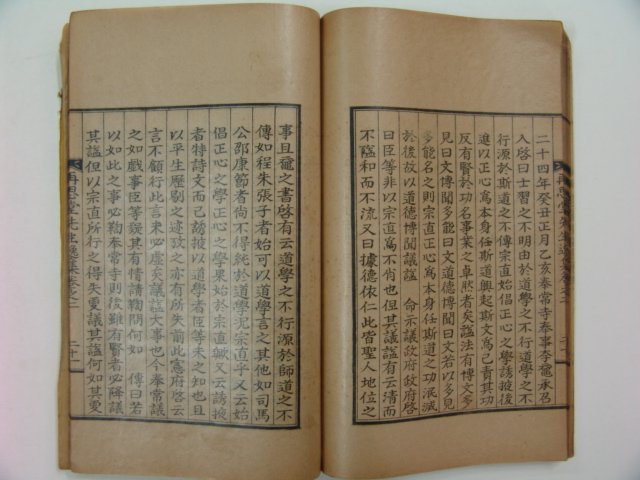 二十四年癸丑正月乙亥奉常寺奉事李黿承召
入啓曰士習之不明由於道學之不行道學之不
行源於斯道之不傳宗直始倡正心之學誘掖後
進以正心爲本身任斯道興起斯文爲己責其功
反有賢於功名事業之卓然者矣謚法有博文多
見曰文博聞多能曰文道德博聞曰文若以多見
多能名之則宗直正心爲本身任斯道之功泯滅
於後故以道德博聞議謚 命示議政府政府啓
曰臣等非以宗直爲不肖也但其議謚有云清而
不隘和而不流又曰據德依仁此皆聖人地位之
再思堂先生逸集卷之二
事且黿之書啓有云道學之不行源於師道之不
傳如程朱張子者始可以道學言之其他如司馬
公邵康節者尙不得統於道學况宗直乎又云始
倡正心之學正心之學果始於宗直歟又云誘掖
者特詩文而已誘掖以道學者臣等未之知也且
以平生歷剔之迹攷之亦有所失前此憲府啓云
言不顧行此言來必虛矣議謚大事也今奉常議
之如戲事臣等疑其有情請鞫問何如 傳曰若
以如此之事必鞫奉常寺則後雖有賢者必降議
其謚但以宗直所行之得失更議其謚何如其更
再思堂先生逸集卷之二 二十一